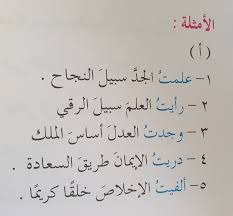 الأمثلة :
( أ )
١- علمتُ الجدَّ سبيلَ النجاح .
٢- رأيتُ العلمَ سبيلَ الرقي
٣- وجدتُ العدلَ أساسَ الملك
٤- دريتُ الإيمانَ طريقَ السعادة .
٥- ألفيتُ الإخلاصَ خلقًا كريمًا .